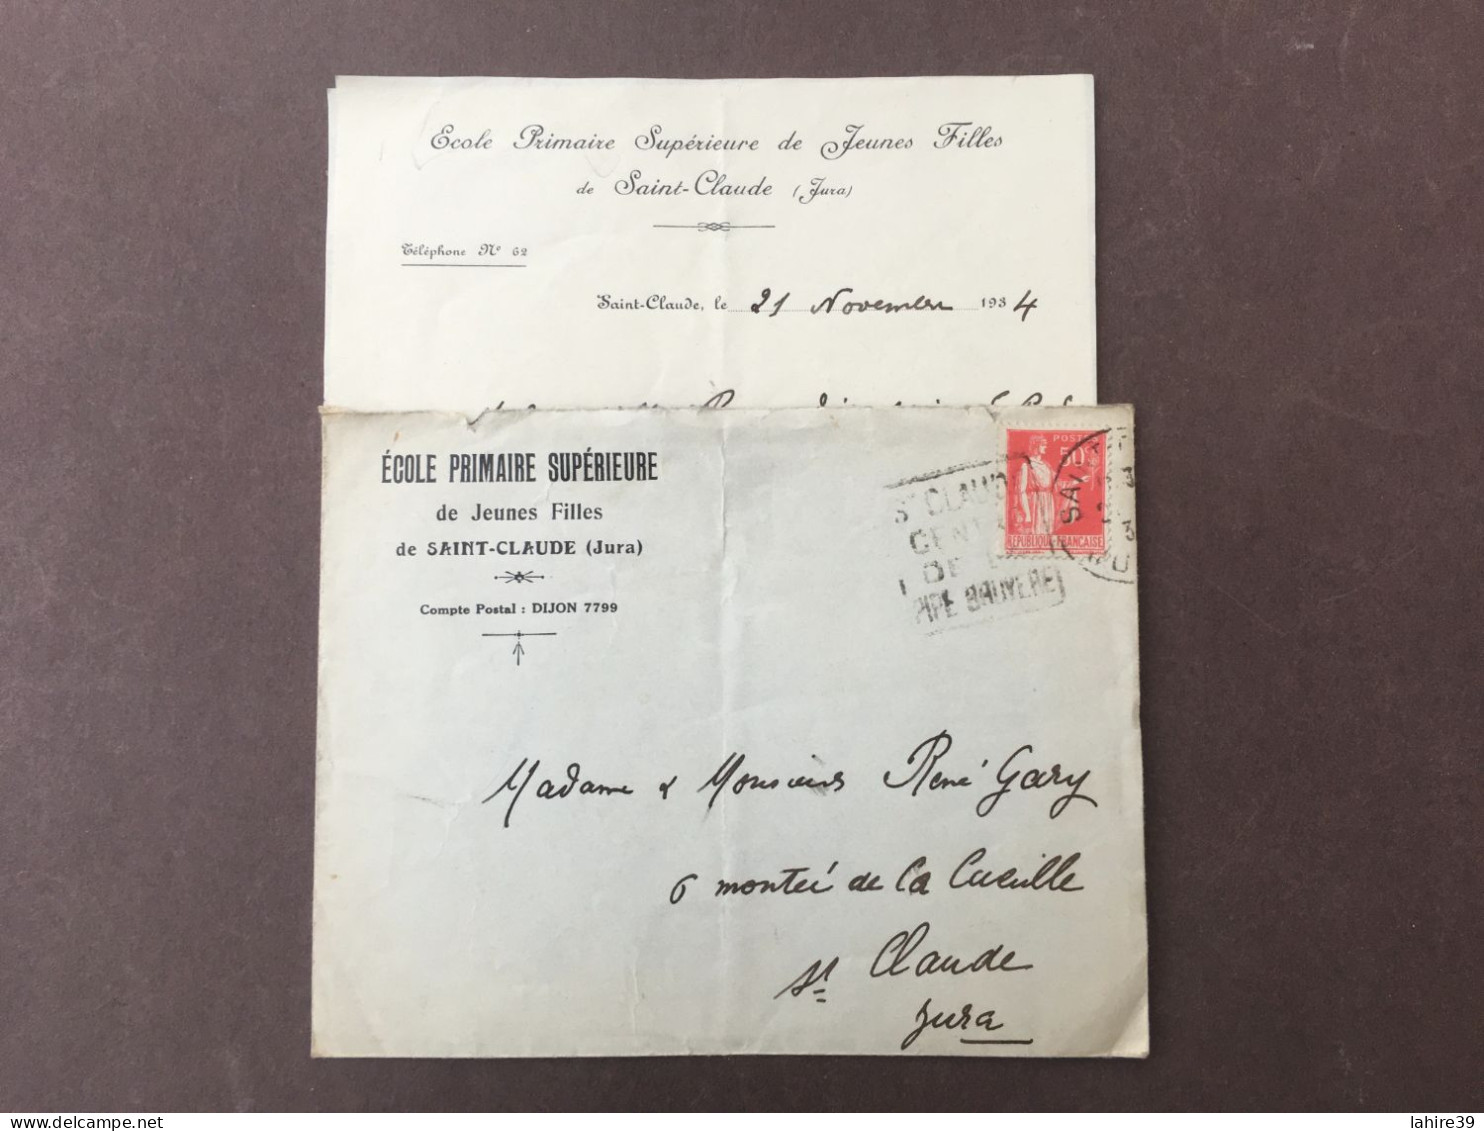 Ecole Primaire Supérieure de Jeunes Filles
de Saint-Claude (Jura)
Téléphone Nº 62
Saint-Claude, le 21 Novembre 1934
ÉCOLE PRIMAIRE SUPÉRIEURE
de Jeunes Filles
de SAINT-CLAUDE (Jura)
Compte Postal : DIJON 7799
POSTES
50c
REPUBLIQUE FRANÇAISE
St CLAUDE
CENT
DE
PIPE BRUYERE
Madame & Monsieur René Gary
6 montée de la Cueille
St Claude
Jura
delcampe.net
lahire39